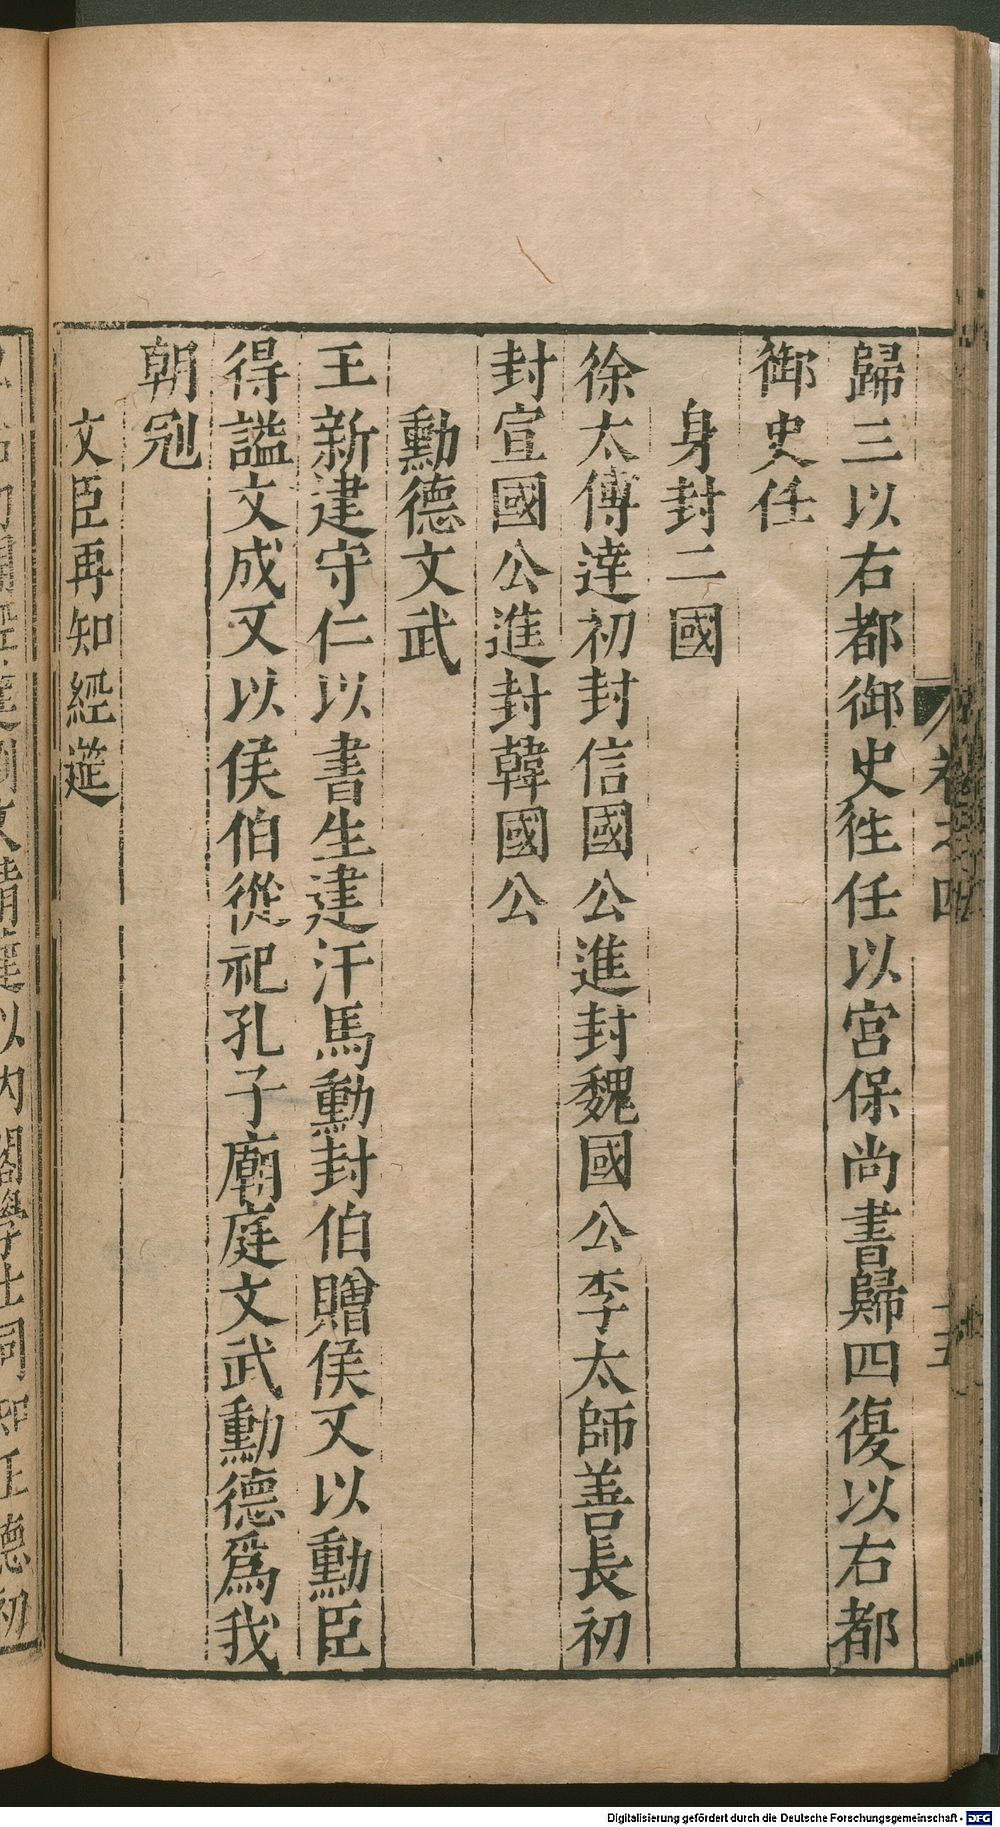 歸三以右都御史徃任以宮保尚書歸四復以右都
御史任
身封二國
徐太傅達初封信國公進封魏國公李太師善長初
封宣國公進封韓國公
勳德文武
王新建守仁以書生建汗馬勳封伯贈侯又以勳臣
得謚文成又以侯伯從祀孔子廟庭文武勳德爲我
朝冠
文臣再知經筵
卷之四
十五
以內閣學士同知
正德初
Digitalisierung gefördert durch die Deutsche Forschungsgemeinschaft - DFG